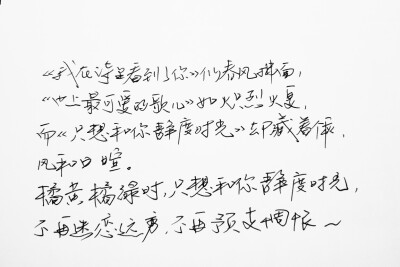 《我在诗里看到了你》似春风拂面，
《世上最可爱的歌儿》如火烈火夏，
而《只想和你静度时光》却藏着
风和日暄。
橘黄橘绿时，只想和你静度时光，
不再迷恋远方，不再预支惆怅～